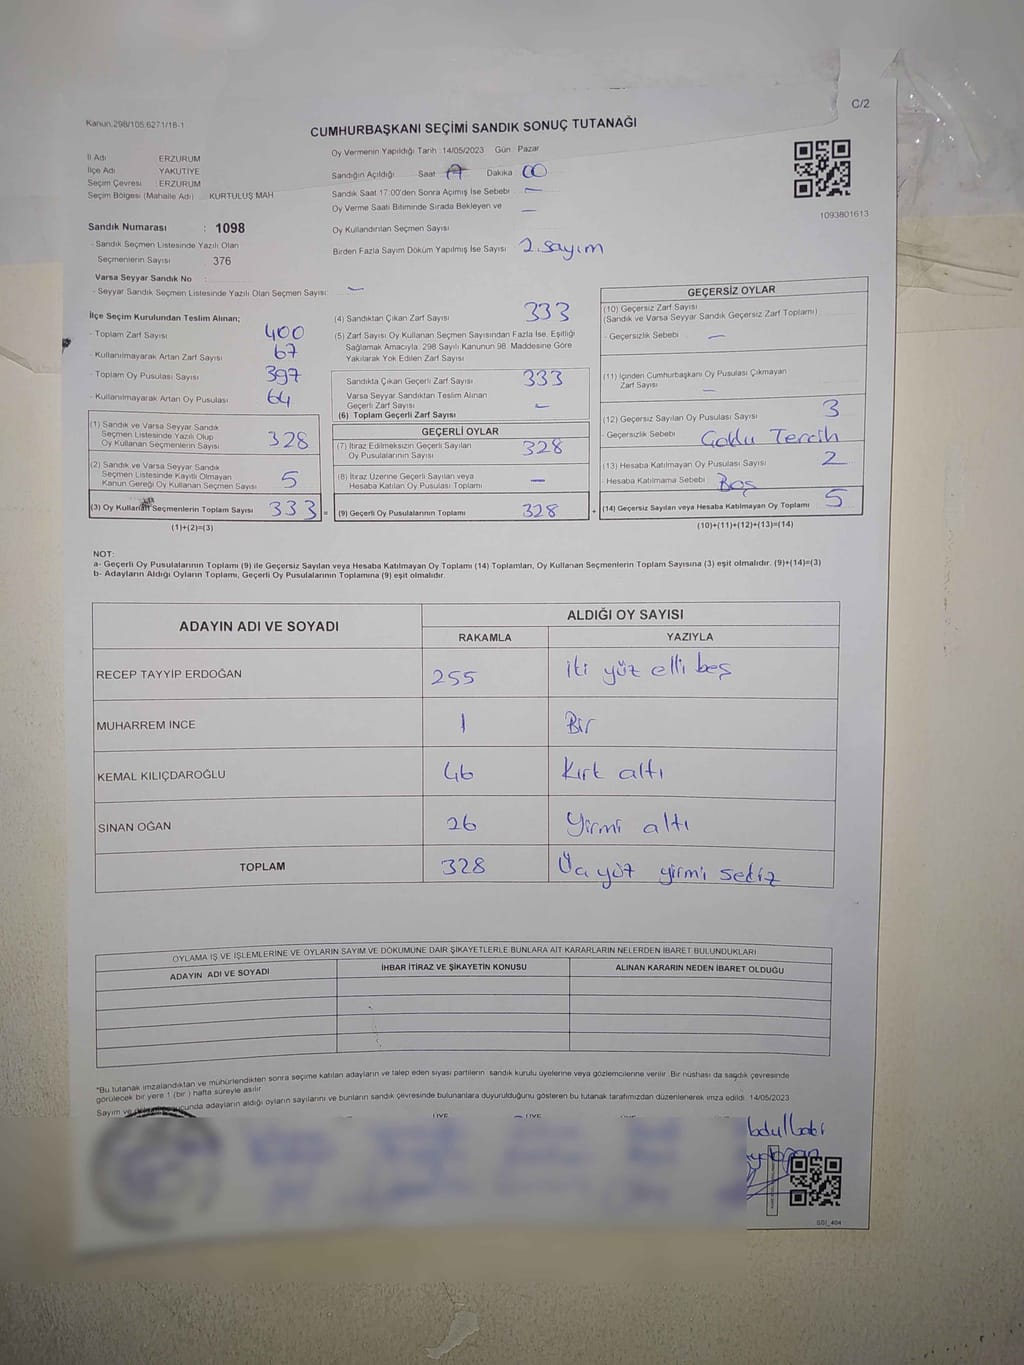 C/2
Kanun.298/105.6271/18-1
CUMHURBAŞKANI SEÇİMİ SANDIK SONUÇ TUTANAĞI
İl Adı : ERZURUM
İlçe Adı : YAKUTİYE
Seçim Çevresi : ERZURUM
Seçim Bölgesi (Mahalle Adı) : KURTULUŞ MAH
Sandık Numarası : 1098
- Sandık Seçmen Listesinde Yazılı Olan
Seçmenlerin Sayısı 376
Varsa Seyyar Sandık No :
- Seyyar Sandık Seçmen Listesinde Yazılı Olan Seçmen Sayısı: —
Oy Vermenin Yapıldığı Tarih :14/05/2023 Gün : Pazar
Sandığın Açıldığı Saat 17 Dakika 00
Sandık Saat 17:00'den Sonra Açımış İse Sebebi —
Oy Verme Saati Bitiminde Sırada Bekleyen ve —
Oy Kullandırılan Seçmen Sayısı
Birden Fazla Sayım Döküm Yapılmış İse Sayısı 2. sayım
1093801613
İlçe Seçim Kurulundan Teslim Alınan;
- Toplam Zarf Sayısı 400
- Kullanılmayarak Artan Zarf Sayısı 67
- Toplam Oy Pusulası Sayısı 397
- Kullanılmayarak Artan Oy Pusulası 64
(1) Sandık ve Varsa Seyyar Sandık
Seçmen Listesinde Yazılı Olup
Oy Kullanan Seçmenlerin Sayısı 328
(2) Sandık ve Varsa Seyyar Sandık
Seçmen Listesinde Kayıtlı Olmayan
Kanun Gereği Oy Kullanan Seçmen Sayısı 5
(3) Oy Kullanan Seçmenlerin Toplam Sayısı 333 =
(1)+(2)=(3)
(4) Sandıktan Çıkan Zarf Sayısı 333
(5) Zarf Sayısı Oy Kullanan Seçmen Sayısından Fazla İse, Eşitliği
Sağlamak Amacıyla; 298 Sayılı Kanunun 98. Maddesine Göre
Yakılarak Yok Edilen Zarf Sayısı
Sandıkta Çıkan Geçerli Zarf Sayısı 333
Varsa Seyyar Sandıktan Teslim Alınan
Geçerli Zarf Sayısı —
(6) Toplam Geçerli Zarf Sayısı
GEÇERLİ OYLAR
(7) İtiraz Edilmeksizin Geçerli Sayılan
Oy Pusulalarının Sayısı 328
(8) İtiraz Üzerine Geçerli Sayılan veya
Hesaba Katılan Oy Pusulası Toplamı —
(9) Geçerli Oy Pusulalarının Toplamı 328 +
GEÇERSİZ OYLAR
(10) Geçersiz Zarf Sayısı
(Sandık ve Varsa Seyyar Sandık Geçersiz Zarf Toplamı)
- Geçersizlik Sebebi —
(11) İçinden Cumhurbaşkanı Oy Pusulası Çıkmayan
Zarf Sayısı —
(12) Geçersiz Sayılan Oy Pusulası Sayısı 3
- Geçersizlik Sebebi Goklu Tercih
(13) Hesaba Katılmayan Oy Pusulası Sayısı 2
- Hesaba Katılmama Sebebi Boş
(14) Geçersiz Sayılan veya Hesaba Katılmayan Oy Toplamı 5
(10)+(11)+(12)+(13)=(14)
NOT:
a- Geçerli Oy Pusulalarının Toplamı (9) ile Geçersiz Sayılan veya Hesaba Katılmayan Oy Toplamı (14) Toplamları, Oy Kullanan Seçmenlerin Toplam Sayısına (3) eşit olmalıdır. (9)+(14)=(3)
b- Adayların Aldığı Oyların Toplamı, Geçerli Oy Pusulalarının Toplamına (9) eşit olmalıdır.
ADAYIN ADI VE SOYADI ALDIĞI OY SAYISI
RAKAMLA YAZIYLA
RECEP TAYYİP ERDOĞAN 255 iki yüz elli beş
MUHARREM İNCE 1 Bir
KEMAL KILIÇDAROĞLU 46 Kırk altı
SİNAN OĞAN 26 Yirmi altı
TOPLAM 328 Üç yüz yirmi sekiz
OYLAMA İŞ VE İŞLEMLERİNE VE OYLARIN SAYIM VE DÖKÜMÜNE DAİR ŞİKAYETLERLE BUNLARA AİT KARARLARIN NELERDEN İBARET BULUNDUKLARI
ADAYIN ADI VE SOYADI İHBAR İTİRAZ VE ŞİKAYETİN KONUSU ALINAN KARARIN NEDEN İBARET OLDUĞU
*Bu tutanak imzalandıktan ve mühürlendikten sonra seçime katılan adayların ve talep eden siyasi partilerin sandık kurulu üyelerine veya gözlemcilerine verilir. Bir nüshası da sandık çevresinde
görülecek bir yere 1 (bir ) hafta süreyle asılır.
Sayım ve sonucunda adayların aldığı oyların sayılarını ve bunların sandık çevresinde bulunanlara duyurulduğunu gösteren bu tutanak tarafımızdan düzenlenerek imza edildi. 14/05/2023
ÜYE ÜYE
SSI_404